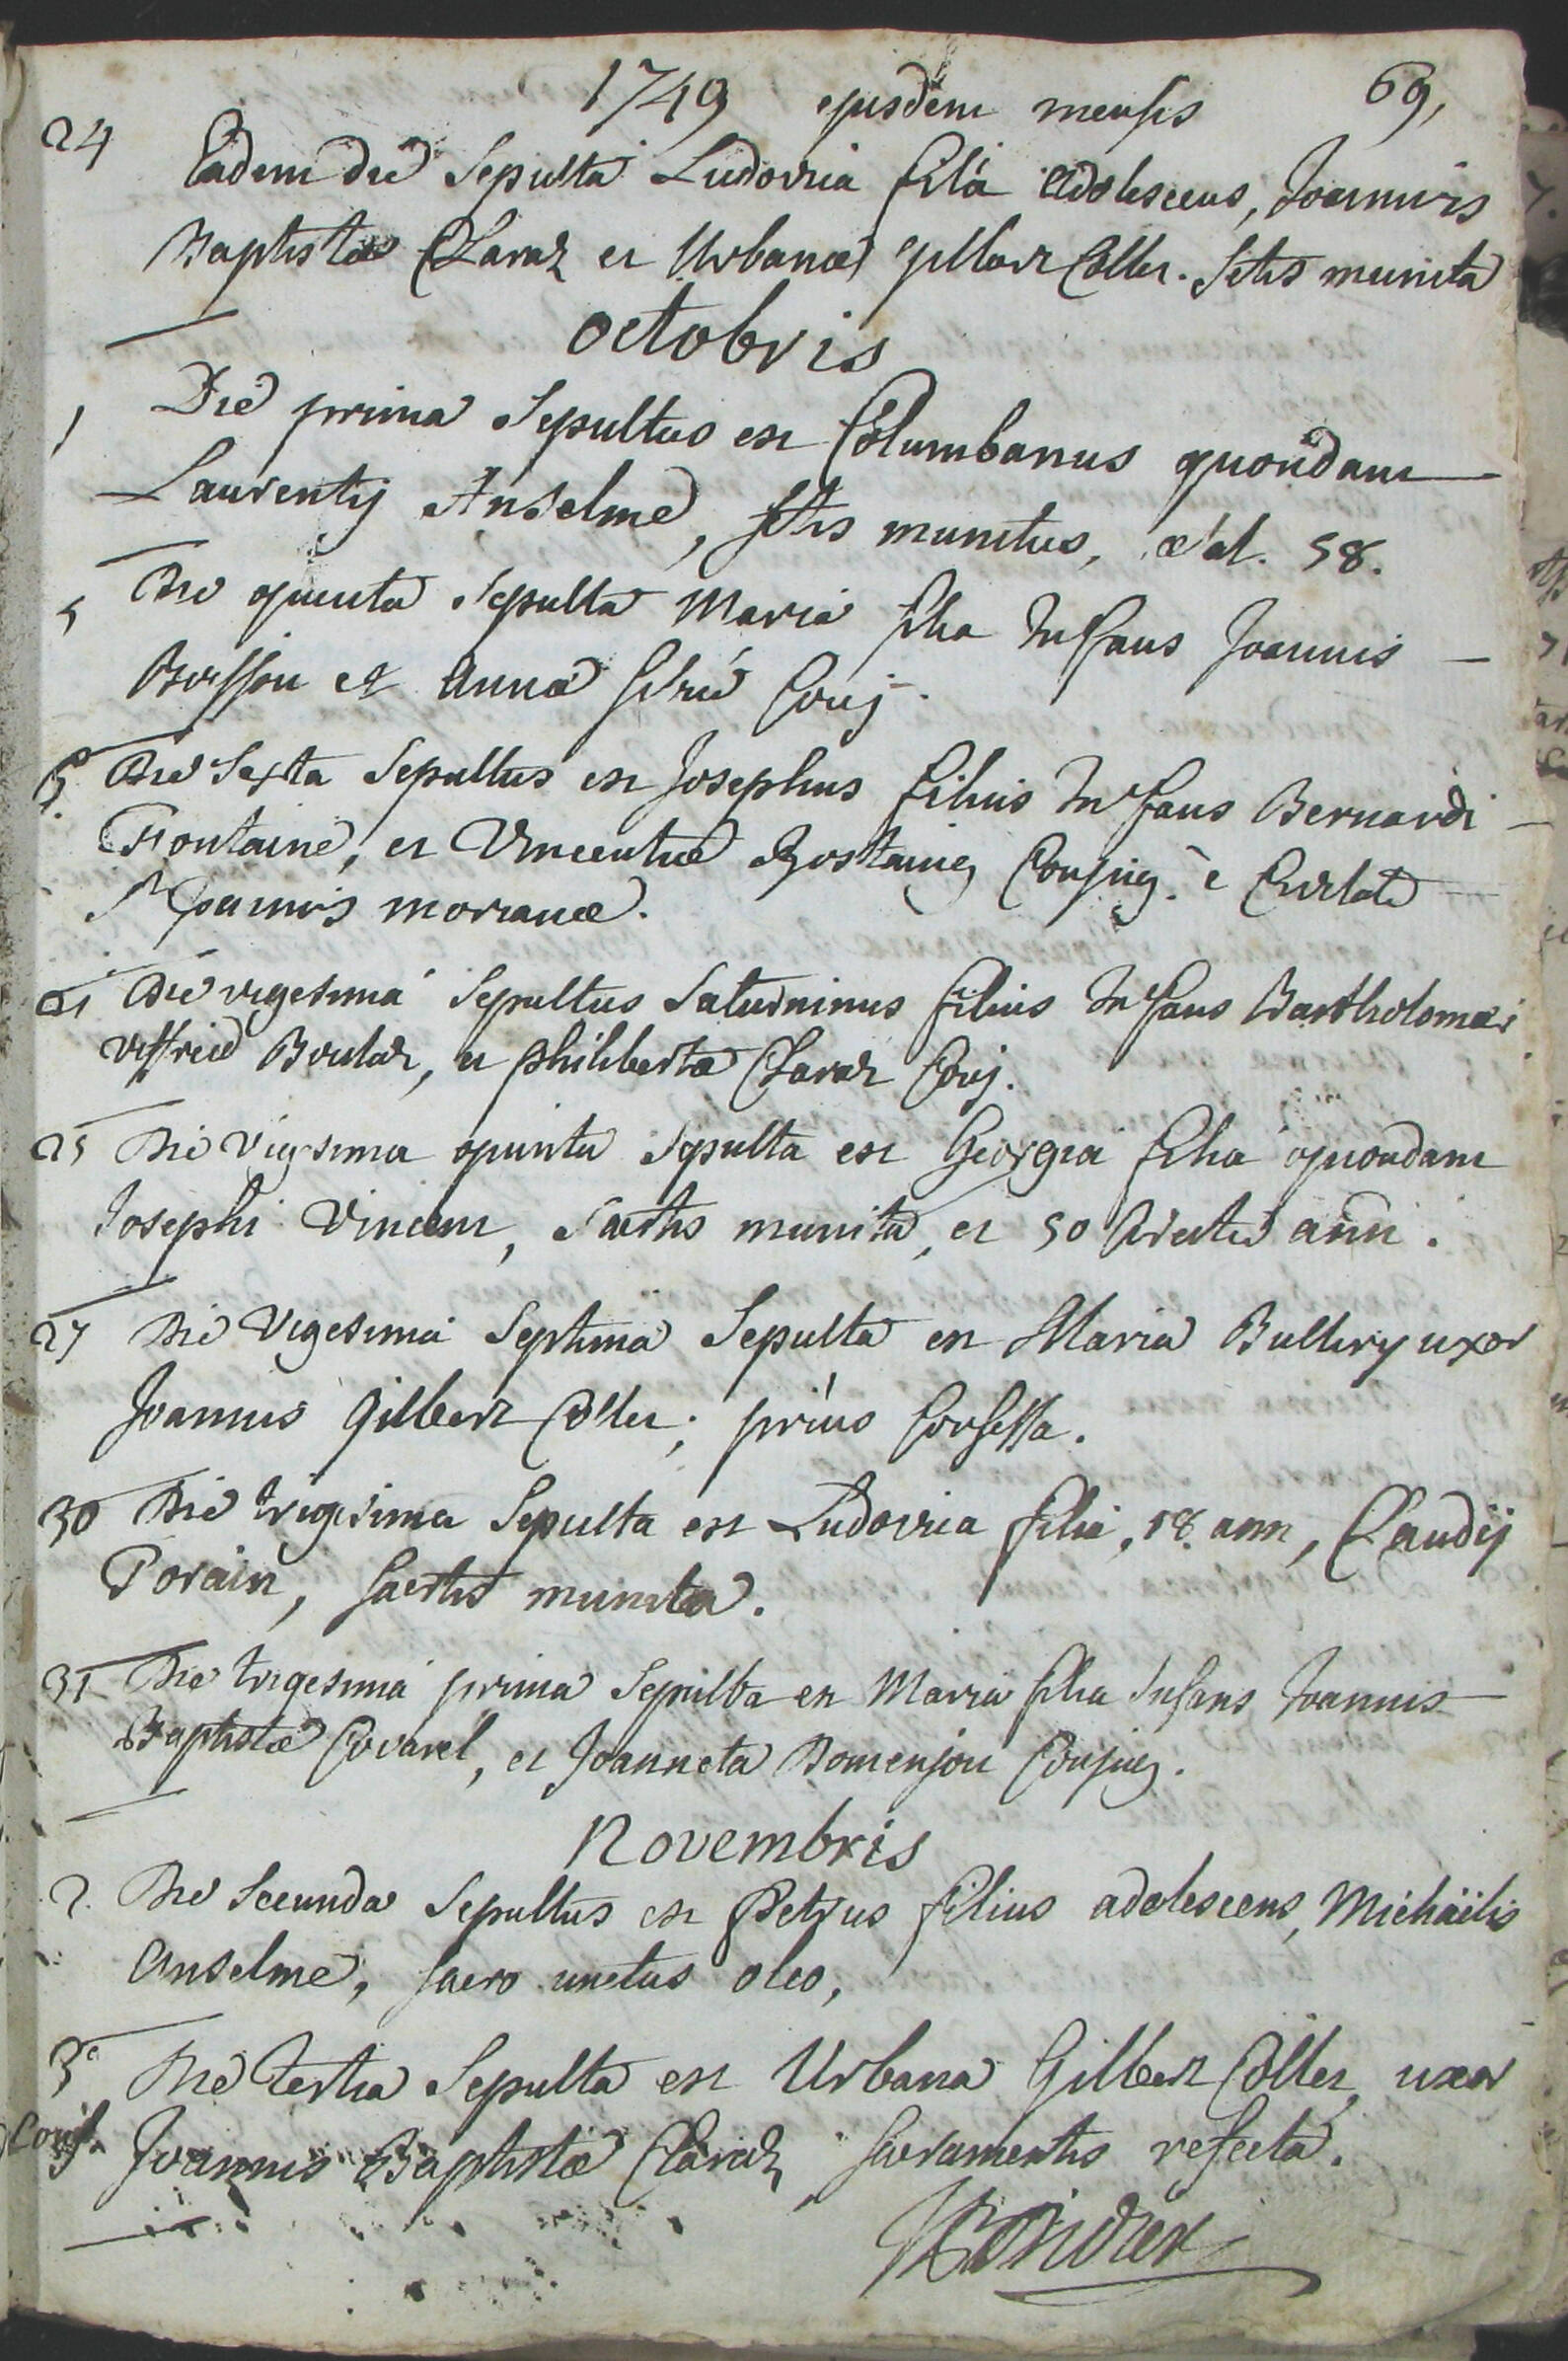 1749 ejusdem mensis 69,
24 Eadem die Sepulta Ludovica filia adolescens, Joannis
Baptistæ Claraz et Urbanæ gilbert Coller. Sctis munita
octobris
1 Die prima Sepultus est Columbanus quondam
Laurentij Anselme, Sctis munitus, ætat. 58.
5 Die quinta Sepulta Maria filia Infans Joannis
Buisson et Annæ Conj.
6. Die Sexta Sepultus est Josephus filius Infans Bernardi
Fontaine, et Vincentiæ Rostaing Conjug. è Civitate
Sti Joannis morianæ.
21 Die vigesima Sepultus Saturninus filius Infans Bartholomæi
Viffrid Boulaz, et philiberta Claraz Conj.
25 Die Vigesima quinta Sepulta est Georgia filia quondam
Josephi Vincent, Sacrtis munita, et 50 circiter ann.
27 Die Vigesima Septima Sepulta est Maria Buttiry uxor
Joannis Gilbert Coller; priùs Confessa.
30 Die trigesima Sepulta est Ludovica filia, 18. ann, Claudij
Porain, Sacrtis munita.
31 Die trigesima prima Sepulta est Maria filia Infans Joannis
Baptistæ Covarel, et Joanneta Domenjon Conjug.
Novembris
2. Die Secunda Sepultus est Petrus filius adolescens, Michäelis
Anselme, sacro unctus oleo,
3 Die tertia Sepulta est Urbana Gilbert Coller, uxor
Joannis Baptistæ Claraz, sacramentis refecta.